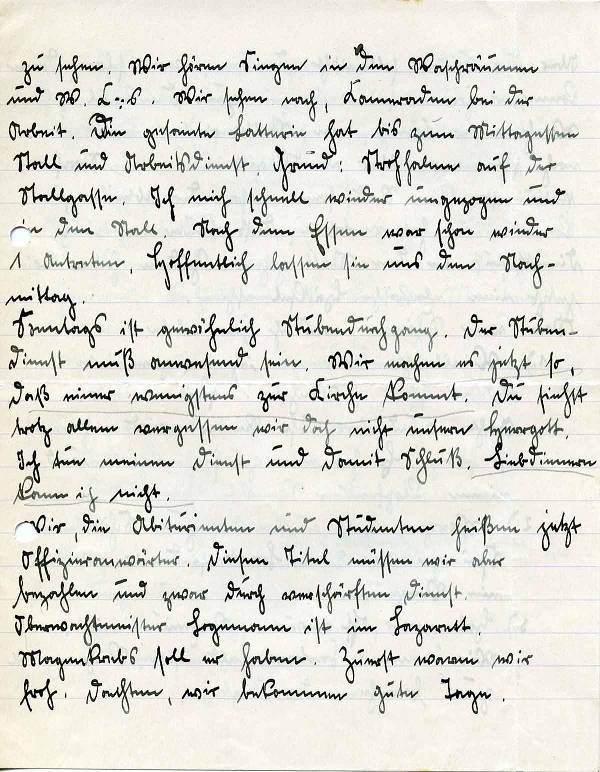 zu sehen. Wir hören Singen in den Waschräumen
und W. C-s. Wir sehen nach, Kameraden bei der
Arbeit. Die gesamte Batterie hat bis zum Mittagessen
Stall und Arbeitsdienst. Grund: Strohhalme auf der
Stallgasse. Ich mich schnell wieder umgezogen und
in den Stall. Nach dem Essen war schon wieder
1 Antreten. Hoffentlich lassen sie uns den Nach-
mittag.
Sonntags ist gewöhnlich Stubendurchgang. Der Stuben-
dienst muß anwesend sein. Wir machen es jetzt so,
daß einer wenigstens zur Kirche kommt. Du siehst
trotz allem vergessen wir doch nicht unsern Herrgott.
Ich tue meinen Dienst und damit Schluß. Liebdienern
kann ich nicht.
Wir, die Abiturienten und Studenten heißen jetzt
Offizieranwärter. Diesen Titel müssen wir aber
bezahlen und zwar durch verschärften Dienst.
Oberwachtmeister Hegemann ist im Lazarett.
Magenkrebs soll er haben. Zuerst waren wir
froh. Dachten, wir bekommen gute Tage.